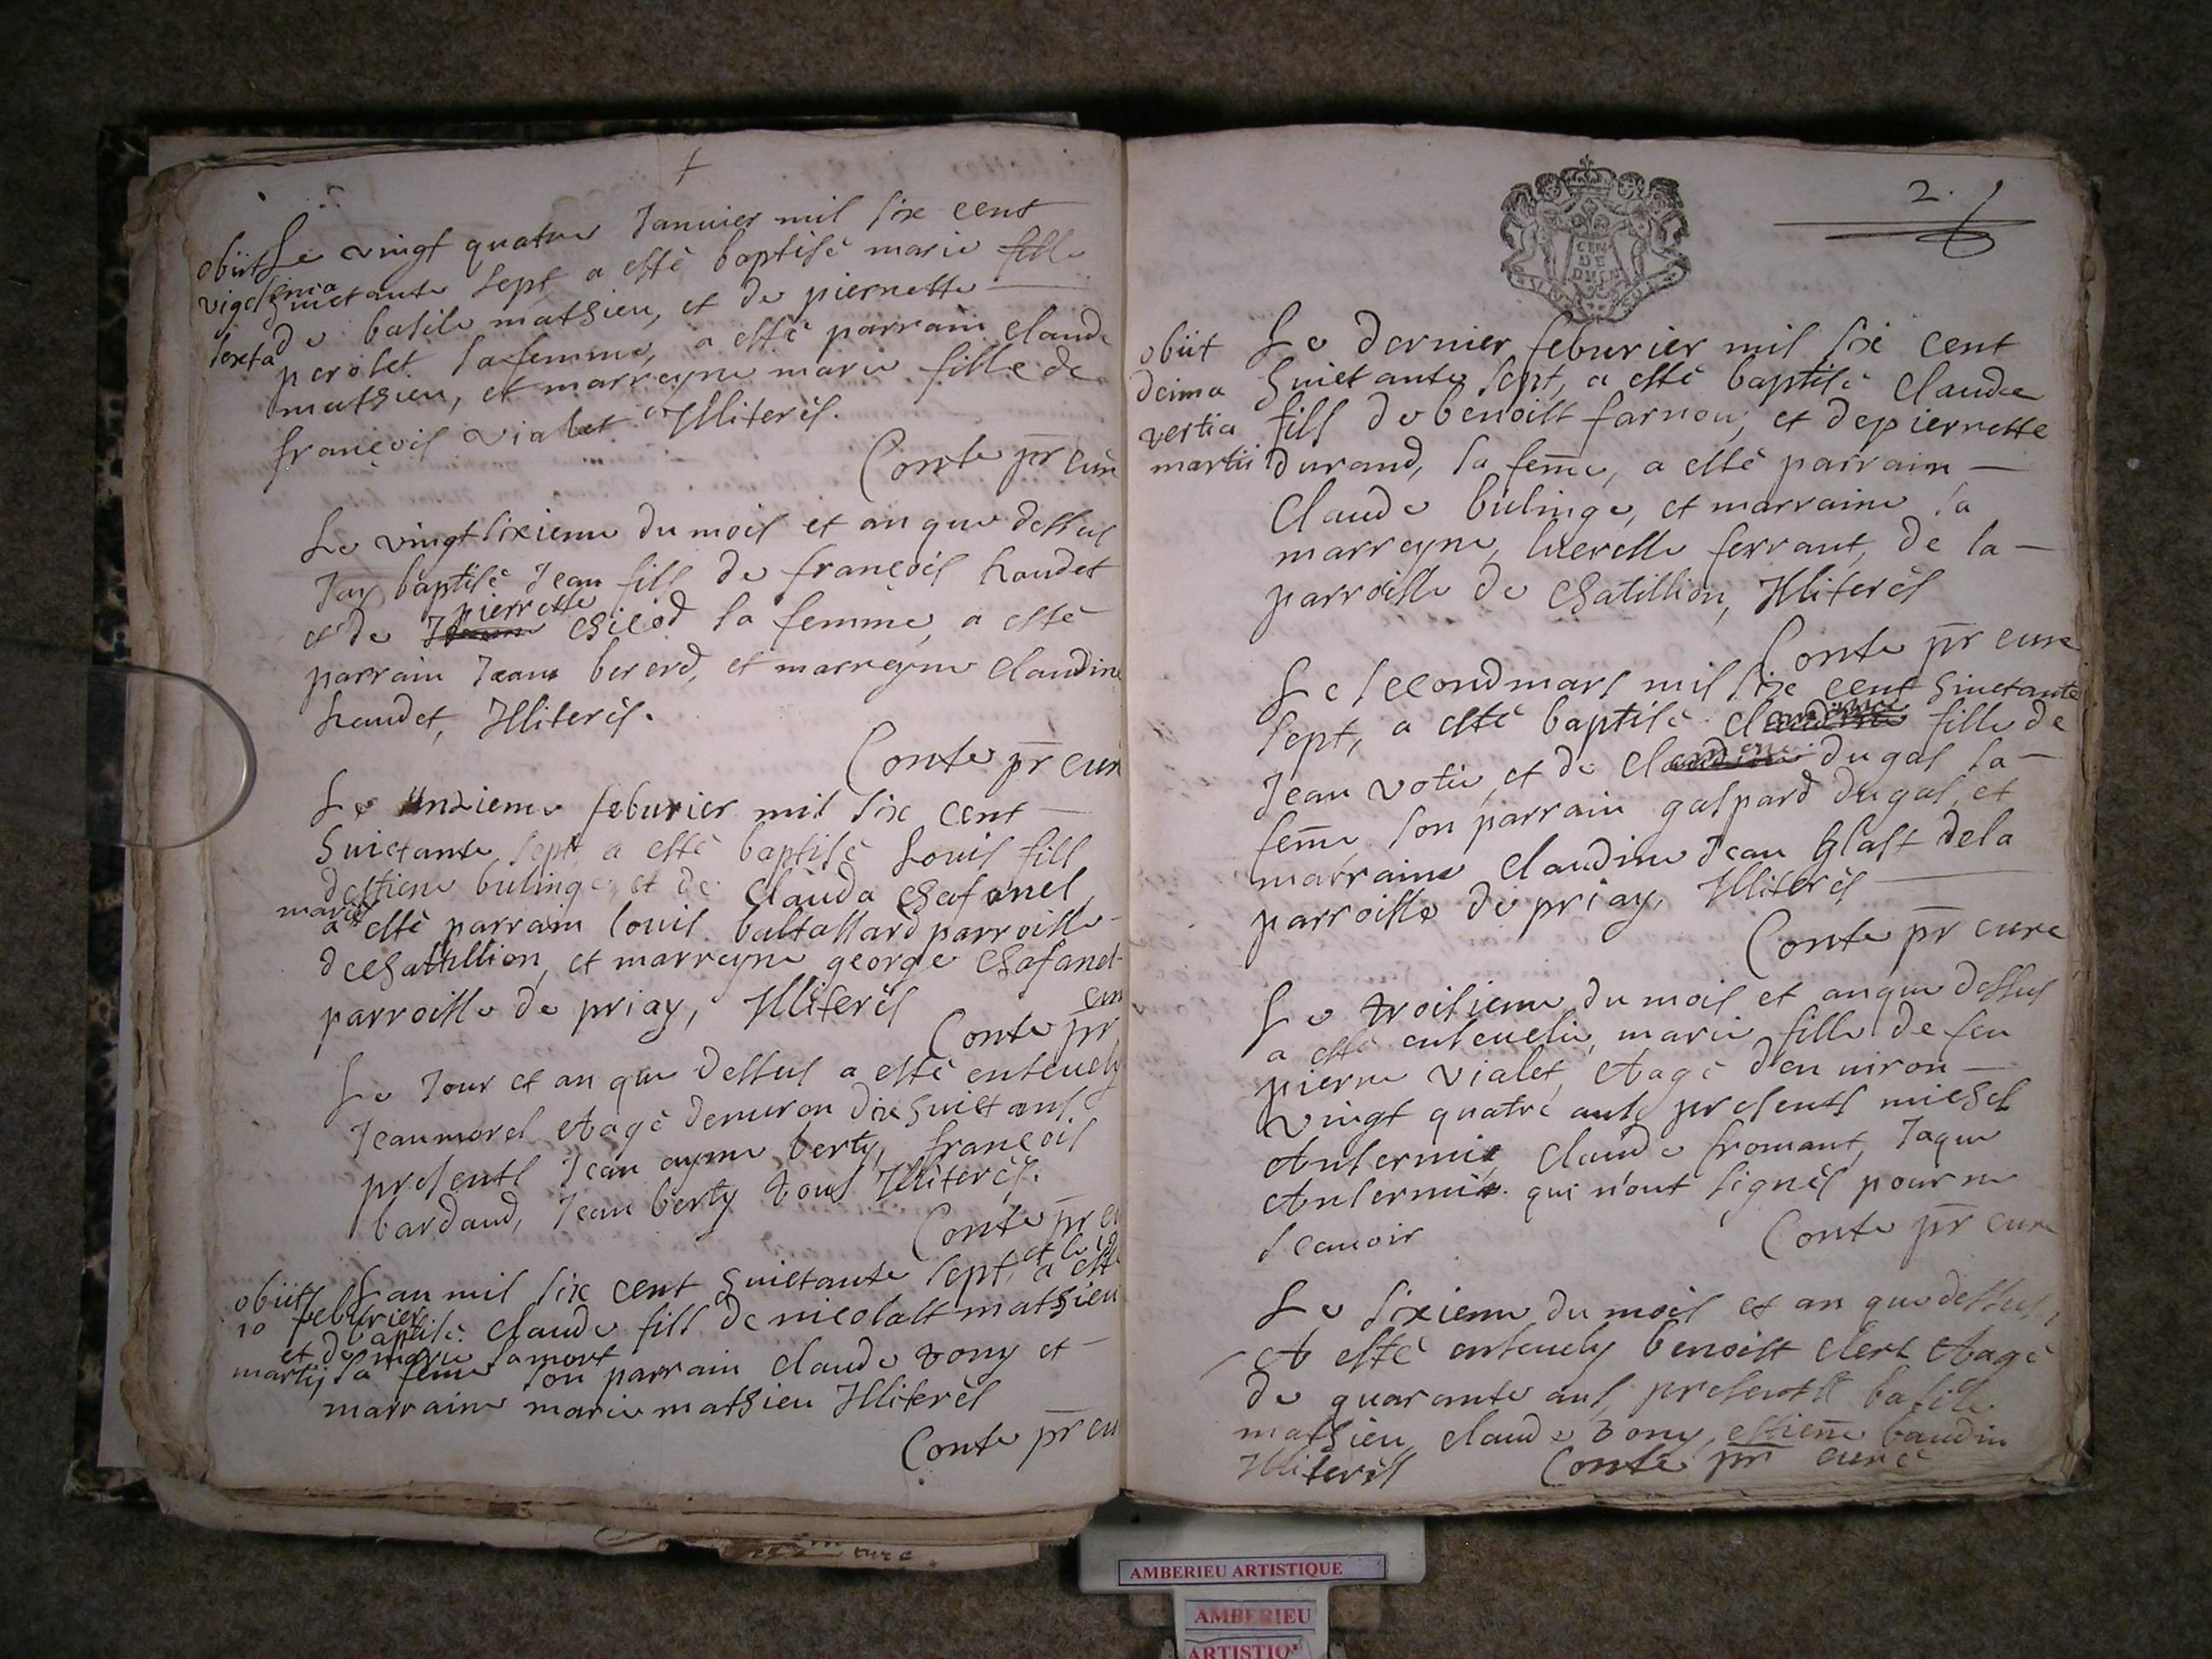 +
Le vingt quatre Januier mil six cent
obiit
huictante sept a esté baptisé marie fille
vigesima
de basile mathieu, et de pierrette
sexta
perolet sa femme, a esté parrain claude
mathieu, et marreyne marie fille de
françois vialet Illiterés.
Conte pr̄ curé
Le vingt sixieme du mois et an que dessus
Jay baptisé Jean fils de françois haudet
et de pierrette chicod sa femme, a esté
parrain Jean bererd, et marreyne claudine
haudet, Illiterés.
Conte pr̄ curé
Le unzieme feburier mil six cent
huictante sept a esté baptisé Louis fils
destiene bulinge et de Clauda Chafanel
mariés
a esté parrain louis baltassard parroisse
de Chatillion, et marreyne george Chafanel
parroisse de priay, Illiterés
Conte pr̄ curé
Le Jour et an que dessus a esté enseuely
Jean morel Aagé denuiron dix huict ans,
presents Jean ayme berty, françois
bardaud, Jean berty tous Illiterés.
Conte pr̄ curé
Lan mil six cent huictante sept, et le 19
obiit
feburier a esté
10
baptisé claude fils de nicolast mathieu
martij
et de marie lamort
sa feme son parrain claude tony et
marraine marie mathieu Illiterés
Conte pr̄ cu
2.
CEN
DE
DVCN
Le dernier feburier mil six cent
obiit
huictante sept, a esté baptisé Claude
deima
fils de benoist farnou, et de pierrette
tertia
durand, sa fem̄e, a esté parrain
martii
Claude bulinge, et marraine la
marreyne, lucresse ferrant, de la
parroisse de Chatillion, Illiterés
Conte pr̄ cure
Le second mars mil six cent huictante
sept, a esté baptisé fille de
Jean votie, et de dugas sa
fem̄e, son parrain gaspard dugas, et
marraine claudine Jean Glast de la
parroisse de priay, Illiterés
Conte pr̄ cure
Le troisieme du mois et an que dessus
a esté enseuelie, marie fille de feu
pierre vialet, Aagé d'enuiron
vingt quatre ans presents michel
Ansermie, Claude fromant, Jaque
Ansermie qui n'ont signés pour ne
scauoir
Conte pr̄ cure
Le sixieme du mois et an que dessus,
A esté enseuely benoist clert Aagé
de quarante ans, presents basile
mathieu, claude tony, estien̄e baudin
Illiterés Conte pr̄ curé
cure
AMBERIEU ARTISTIQUE
AMBERIEU
ARTISTIQU